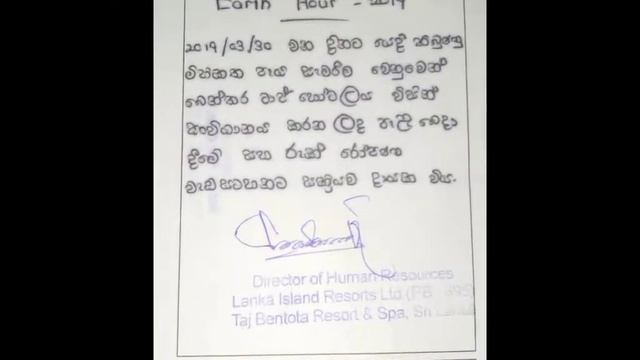 Earth Hour - 2019
2019/03/30 වන දිනට යෙදී තිබුණු
මිහිතක පැය සැමරීම වෙනුවෙන්
බෙන්තර ටාජ් හෝටලය විසින්
සංවිධානය කරන ලද පැල බෙදා
දීමේ සහ රුක් රෝපණ
වැඩසටහනට සක්‍රීයව දායක විය.
Director of Human Resources
Lanka Island Resorts Ltd (PB 895)
Taj Bentota Resort & Spa, Sri Lanka